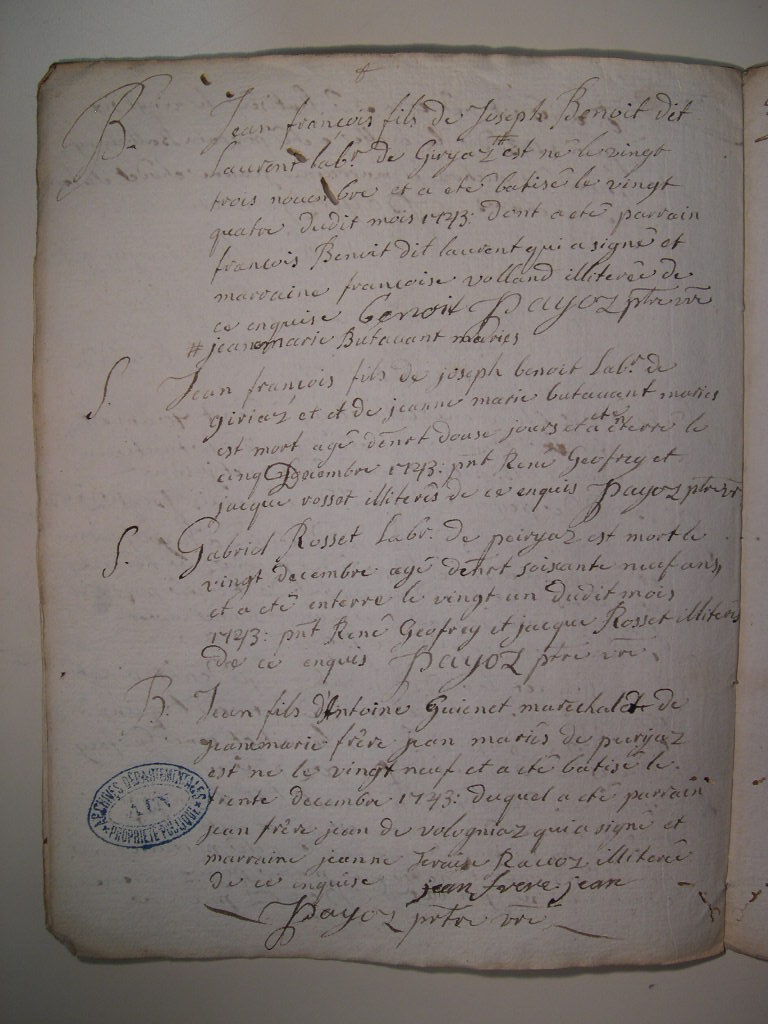 B. Jean françois fils de Joseph Benoit dit
Laurent labr. de Giryaz # est né le vingt
trois nouembre et a eté batisé le vingt
quatre dudit mois 1743: dont a eté parrain
françois Benoit dit laurent qui a signé et
marraine françoise volland illiterée de
ce enquise benoit Payoz ptre vre
# jeanemarie Butavant mariés
S. Jean françois fils de joseph benoit Labr. de
giriaz et et de jeanne marie butauant mariés
est mort agé denrt douse jours et a eté eterré le
cinq Decembre 1743: pnt René Geofrey et
jacque rosset illiterés de ce enquis Payoz ptre vr
S. Gabriel Rosset Labr. de peiryaz est mort le
vingt decembre agé denrt soisante neuf ans,
et a eté enterré le vingt un dudit mois
1743: pnt René Geofrey et jacque Rosset illiterés
de ce enquis Payoz ptre vre
B. Jean fils d'Antoine Guienet maréchal et de
jeanemarie frère jean mariés de peiryaz
est né le vingt neuf et a eté batisé le
trente decembre 1743: duquel a eté parrain
jean frère jean de volognias qui a signé et
marraine jeanne illiterée
de ce enquise jean frere jean
Payoz prtre vre
ARCHIVES DÉPARTEMENTALES
AIN
PROPRIÉTÉ PUBLIQUE